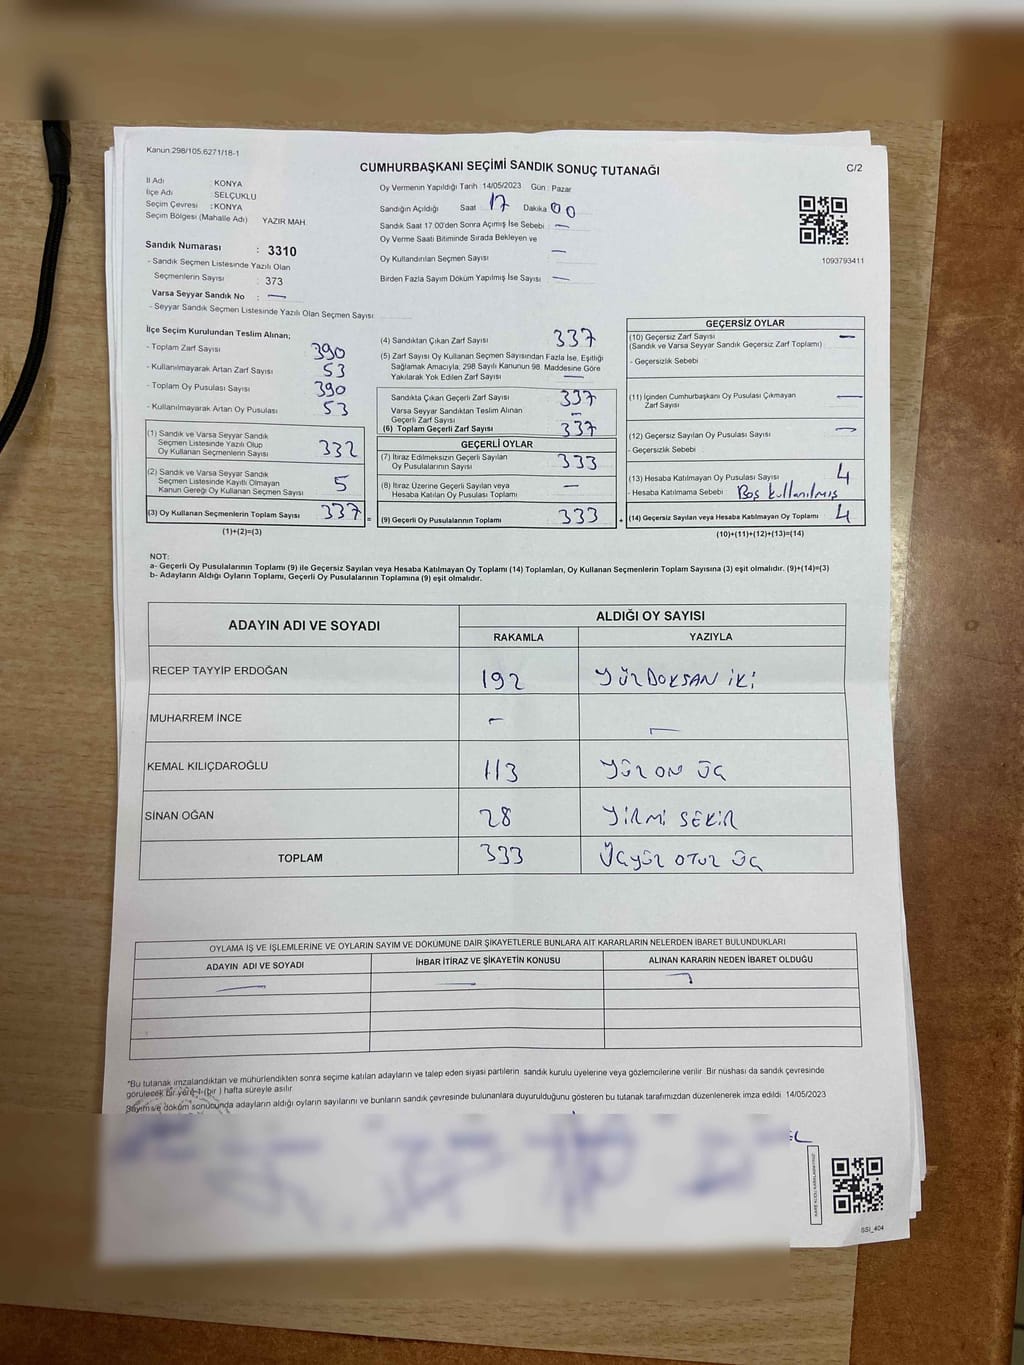 Kanun.298/105.6271/18-1
CUMHURBAŞKANI SEÇİMİ SANDIK SONUÇ TUTANAĞI
C/2
İl Adı : KONYA
İlçe Adı : SELÇUKLU
Seçim Çevresi : KONYA
Seçim Bölgesi (Mahalle Adı) YAZIR MAH.
Sandık Numarası : 3310
- Sandık Seçmen Listesinde Yazılı Olan
Seçmenlerin Sayısı : 373
Varsa Seyyar Sandık No : —
- Seyyar Sandık Seçmen Listesinde Yazılı Olan Seçmen Sayısı:
Oy Vermenin Yapıldığı Tarih :14/05/2023 Gün : Pazar
Sandığın Açıldığı Saat 17 Dakika 00
Sandık Saat 17.00'den Sonra Açımış İse Sebebi —
Oy Verme Saati Bitiminde Sırada Bekleyen ve
Oy Kullandırılan Seçmen Sayısı —
Birden Fazla Sayım Döküm Yapılmış İse Sayısı —
1093793411
İlçe Seçim Kurulundan Teslim Alınan;
- Toplam Zarf Sayısı 390
- Kullanılmayarak Artan Zarf Sayısı 53
- Toplam Oy Pusulası Sayısı 390
- Kullanılmayarak Artan Oy Pusulası 53
(1) Sandık ve Varsa Seyyar Sandık
Seçmen Listesinde Yazılı Olup
Oy Kullanan Seçmenlerin Sayısı 332
(2) Sandık ve Varsa Seyyar Sandık
Seçmen Listesinde Kayıtlı Olmayan
Kanun Gereği Oy Kullanan Seçmen Sayısı 5
(3) Oy Kullanan Seçmenlerin Toplam Sayısı 337 =
(1)+(2)=(3)
(4) Sandıktan Çıkan Zarf Sayısı 337
(5) Zarf Sayısı Oy Kullanan Seçmen Sayısından Fazla İse, Eşitliği
Sağlamak Amacıyla; 298 Sayılı Kanunun 98. Maddesine Göre
Yakılarak Yok Edilen Zarf Sayısı —
Sandıkta Çıkan Geçerli Zarf Sayısı 337
Varsa Seyyar Sandıktan Teslim Alınan
Geçerli Zarf Sayısı —
(6) Toplam Geçerli Zarf Sayısı 337
GEÇERLİ OYLAR
(7) İtiraz Edilmeksizin Geçerli Sayılan
Oy Pusulalarının Sayısı 333
(8) İtiraz Üzerine Geçerli Sayılan veya
Hesaba Katılan Oy Pusulası Toplamı —
(9) Geçerli Oy Pusulalarının Toplamı 333 +
GEÇERSİZ OYLAR
(10) Geçersiz Zarf Sayısı —
(Sandık ve Varsa Seyyar Sandık Geçersiz Zarf Toplamı)
- Geçersizlik Sebebi
(11) İçinden Cumhurbaşkanı Oy Pusulası Çıkmayan —
Zarf Sayısı
(12) Geçersiz Sayılan Oy Pusulası Sayısı —
- Geçersizlik Sebebi
(13) Hesaba Katılmayan Oy Pusulası Sayısı 4
- Hesaba Katılmama Sebebi Boş kullanılmış
(14) Geçersiz Sayılan veya Hesaba Katılmayan Oy Toplamı 4
(10)+(11)+(12)+(13)=(14)
NOT:
a- Geçerli Oy Pusulalarının Toplamı (9) ile Geçersiz Sayılan veya Hesaba Katılmayan Oy Toplamı (14) Toplamları, Oy Kullanan Seçmenlerin Toplam Sayısına (3) eşit olmalıdır. (9)+(14)=(3)
b- Adayların Aldığı Oyların Toplamı, Geçerli Oy Pusulalarının Toplamına (9) eşit olmalıdır.
ADAYIN ADI VE SOYADI ALDIĞI OY SAYISI
RAKAMLA YAZIYLA
RECEP TAYYİP ERDOĞAN 192 YÜZ DOKSAN İKİ
MUHARREM İNCE — —
KEMAL KILIÇDAROĞLU 113 YÜZ ON ÜÇ
SİNAN OĞAN 28 YİRMİ SEKİZ
TOPLAM 333 ÜÇYÜZ OTUZ ÜÇ
OYLAMA İŞ VE İŞLEMLERİNE VE OYLARIN SAYIM VE DÖKÜMÜNE DAİR ŞİKAYETLERLE BUNLARA AİT KARARLARIN NELERDEN İBARET BULUNDUKLARI
ADAYIN ADI VE SOYADI İHBAR İTİRAZ VE ŞİKAYETİN KONUSU ALINAN KARARIN NEDEN İBARET OLDUĞU
— — —
*Bu tutanak imzalandıktan ve mühürlendikten sonra seçime katılan adayların ve talep eden siyasi partilerin sandık kurulu üyelerine veya gözlemcilerine verilir. Bir nüshası da sandık çevresinde
görülecek bir yere 1 (bir ) hafta süreyle asılır
Sayım ve döküm sonucunda adayların aldığı oyların sayılarını ve bunların sandık çevresinde bulunanlara duyurulduğunu gösteren bu tutanak tarafımızdan düzenlenerek imza edildi. 14/05/2023
SSİ_404